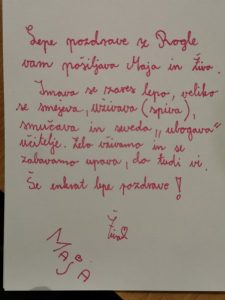 Lepe pozdrave z Rogle
vam pošiljava Maja in Živa.
Imava se zares lepo, veliko
se smejeva, uživava (spiva),
smučava in seveda „ubogava"
učitelje. Zelo uživamo in se
zabavamo upava, da tudi vi.
Še enkrat lepe pozdrave!
Živa
MAJA